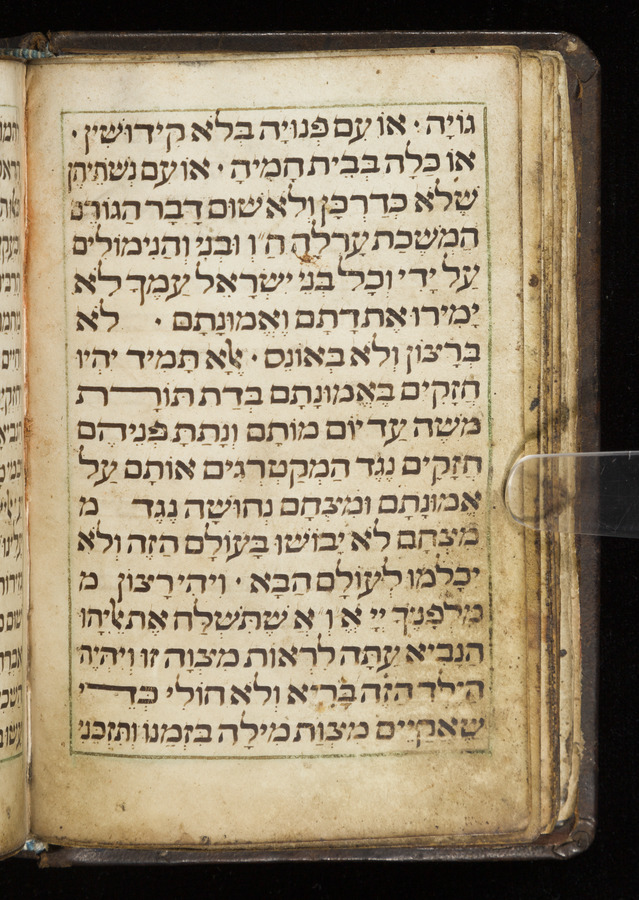 גּוֹיָה · אוֹ עִם פְּנוּיָה בְּלֹא קִידוּשִׁין ·
אוֹ כַּלָּה בְּבֵית חָמִיהָ · אוֹ עִם נְשֹׁתֵיהֶן
שֶׁלֹּא כְּדַרְכָּן וְלֹא שׁוּם דָּבָר הַגּוֹרֵם
הַמְּשָׁכַת עָרְלָה ח״ו וּבְנַי וְהַנִּימוֹלִים
עַל יָדִי וְכָל בְּנֵי יִשְׂרָאֵל עַמְּךָ לֹא
יָמִירוּ אֶת דָּתָם וֶאֱמוּנָתָם · לֹא
בְּרָצוֹן וְלֹא בְּאוֹנֶס · אֶלָּא תָּמִיד יִהְיוּ
חֲזָקִים בֶּאֱמוּנָתָם בְּדַת תּוֹרַת
מֹשֶׁה עַד יוֹם מוֹתָם וְנָתַתָּ פְּנֵיהֶם
חֲזָקִים נֶגֶד הַמְקַטְרְגִים אוֹתָם עַל
אֱמוּנָתָם וּמִצְחָם נְחוּשָׁה נֶגֶד מ
מִצְחָם לֹא יֵבוֹשׁוּ בָּעוֹלָם הַזֶּה וְלֹא
יִכָּלְמוּ לְעוֹלָם הַבָּא · וִיהִי רָצוֹן מ
מִלְּפָנֶיךָ יְיָ א׳ וְ א׳ שֶׁתִּשְׁלַח אֶת אֵלִיָּהוּ
הַנָּבִיא עַתָּה לִרְאוֹת מִצְוָה זוּ וְיִהְיֶה
הַיֶּלֶד הַזֶּה בָּרִיא וְלֹא חוֹלִי כְּדֵי
שֶׁאֲקַיֵּים מִצְוַת מִילָה בִּזְמַנּוֹ וּתְזַכֵּנִי